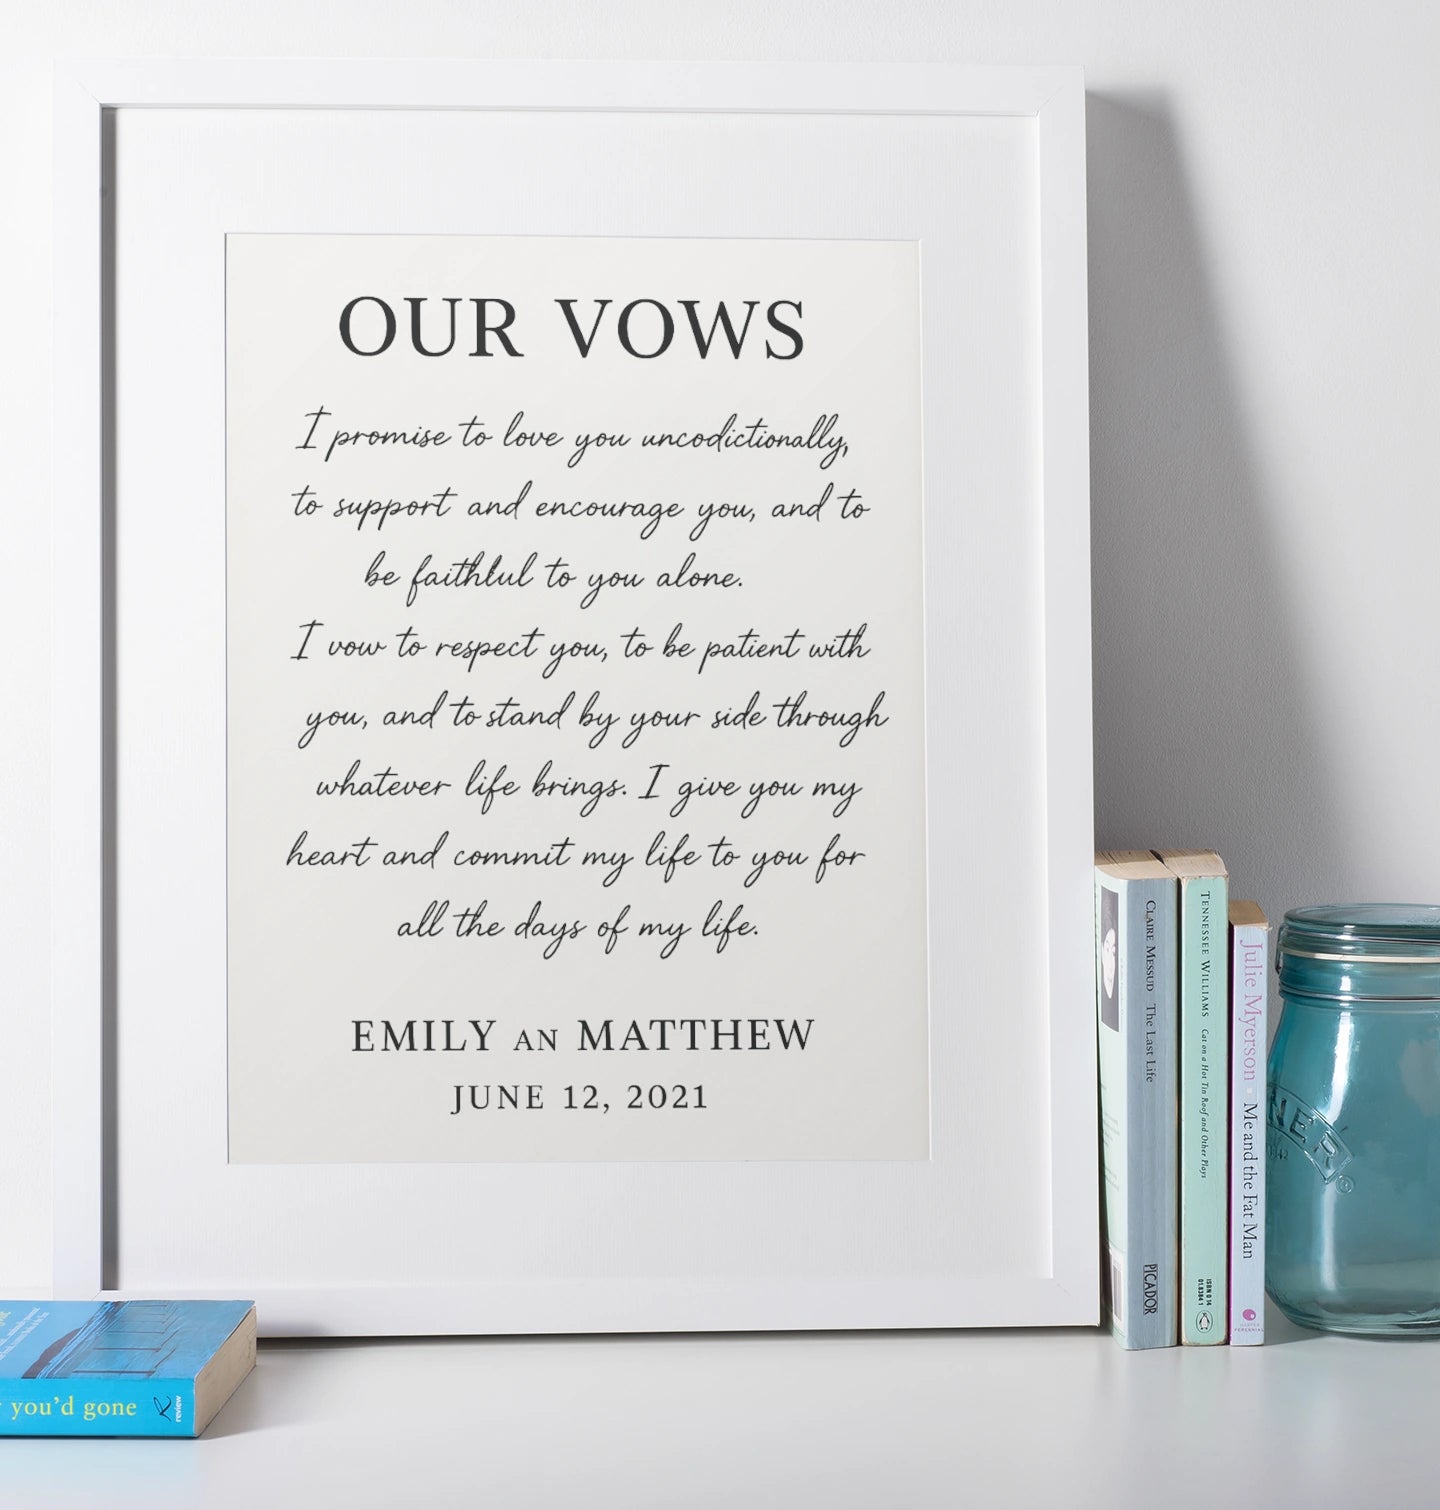 OUR VOWS
I promise to love you uncodictionally,
to support and encourage you, and to
be faithlul to you alone.
I vow to respect you, to be patient with
you, and to stand by your side through
whatever life brings. I give you my
heart and commit my life to you for
all the days of my life.
EMILY AN MATTHEW
JUNE 12, 2021
CLAIRE MESSUD The Last Life
PICADOR
TENNESSEE WILLIAMS Cat on a Hot Tin Roof and Other Plays
ISBN 0 14
Julie Myerson Me and the Fat Man
HARPER
PERENNIAL
NER
you'd gone